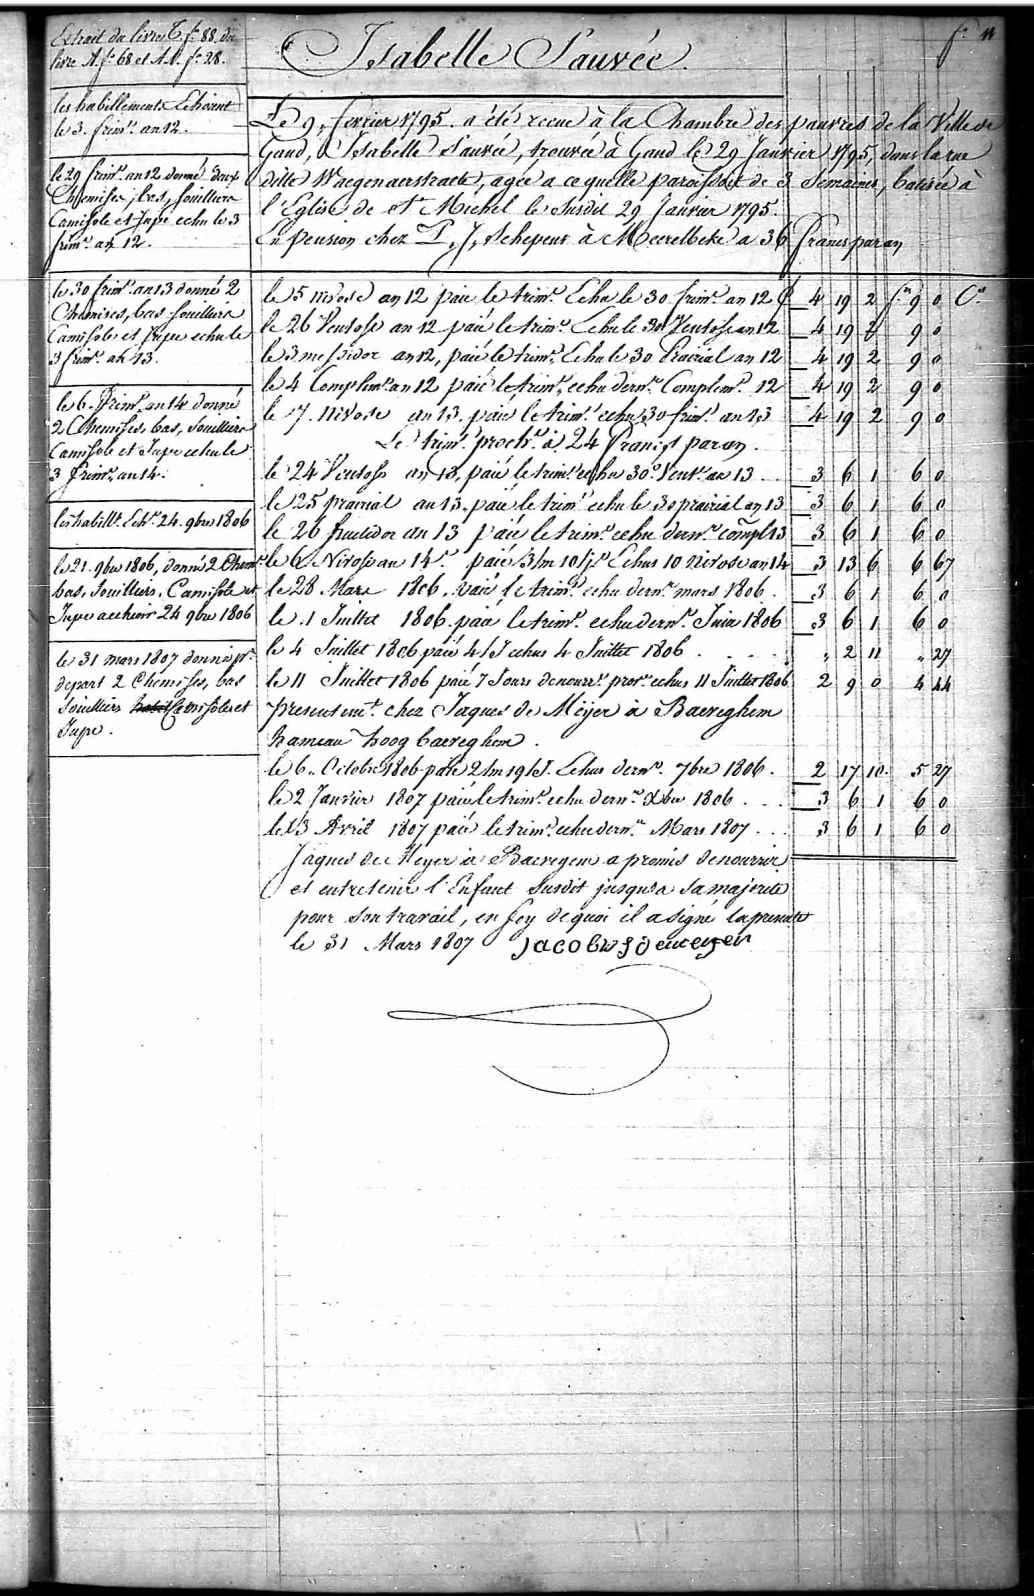 Extrait du livre C f.° 88. du
livre A. f.° 68 et A.A. f.° 28.
Isabelle Sauvée.
f.° 11
les habillements Echoient
le 3. frim.e an 12.
le 29 frim.e an 12 donné deux
Chemises, bas, souilliers
Camisole et Jupe echu le 3
frim.e an 12.
Le 9, fevrier 1795. a été recue à la Chambre des pauvres de la Ville de
Gand, Isabelle Sauvée, trouvée à Gand le 29 Janvier 1795, dans la rue
ditte Waegenaerstraete, agée a ce quelle paroissoit de 3 Semaines, batisée à
l'Eglise de St Michel le susdit 29 Janvier 1795.
En pension chez P. J. Schepens à Meerelbeke a 36 francs par an
le 30 frim.e an 13 donné 2
Chemises, bas souilliers
Camisole et Jupe echu le
3 frim.e an 13.
le 6. frim.e an 14 donné
2 Chemises, bas, souilliers
Camisole et Jupe echu le
3 frim.e an 14.
les habillts. Echt. 24. 9bre 1806
le 21. 9bre 1806, donné 2 Chem.
bas, souilliers, Camisole et
Jupe a echeoir 24 9bre 1806
le 31 mars 1807 donné pr.
depart 2 Chemises, bas
souilliers Camisole et
Jupe.
le 5 nivose an 12 paié le trim.e Echu le 30 frim.e an 12 4 19 2 f.s 9 0 C.s
le 26 Ventose an 12 paié le trim.e Echu le 30 Ventose an 12 4 19 2 9 0
le 3 messidor an 12, paié le trim.e Echu le 30 Prairial an 12 4 19 2 9 0
le 4 Complim.e an 12 paié le trim.e echu dern.r Complim.e 12 4 19 2 9 0
le 7. nivose an 13. paié le trim.e echu 30 frim.e an 13 4 19 2 9 0
Le trim.e proch.n à 24 francs par an.
le 24 Ventose an 13, paié le trim.e echu 30.e Vent.e an 13 3 6 1 6 0
le 25 prairial an 13 paié le trim.e echu le 30 prairial an 13 3 6 1 6 0
le 26 fructidor an 13 paié le trim.e echu dern.r compl 13 3 6 1 6 0
le 6 Nivose an 14.e paié 3/m 10/j.s Echus 10 nivose an 14 3 13 6 6 67
le 28 Mars 1806. paié le trim.e echu dern.r mars 1806. 3 6 1 6 0
le 1 Juillet 1806. paié le trim.e echu dern.r Juin 1806 3 6 1 6 0
le 4 Juillet 1806 paié 4/J echus 4 Juillet 1806 . . . . „ 2 11 „ 27
le 11 Juillet 1806 paié 7 Jours de nourr.e prov.e echus 11 Juillet 1806 2 9 0 4 44
presentem.t chez Jaques de Meijer à Baereghem
hameau hoog baereghem.
le 6. Octobre 1806 paié 2/m 19/J. Echus dern.r 7bre 1806. 2 17 10 5 27
le 2 Janvier 1807 paié le trim.e echu dern.r Xbre 1806 . . . 3 6 1 6 0
le 13 Avril 1807 paié le trim.e echu dern.r Mars 1807 . . . 3 6 1 6 0
Jaques de Meyer à Baeregem a promis de nourrir
et entretenir l'Enfant susdit jusqu'a sa majorité
pour son travail, en foy de quoi il a signé la presente
le 31 Mars 1807 Jacobus de meyer